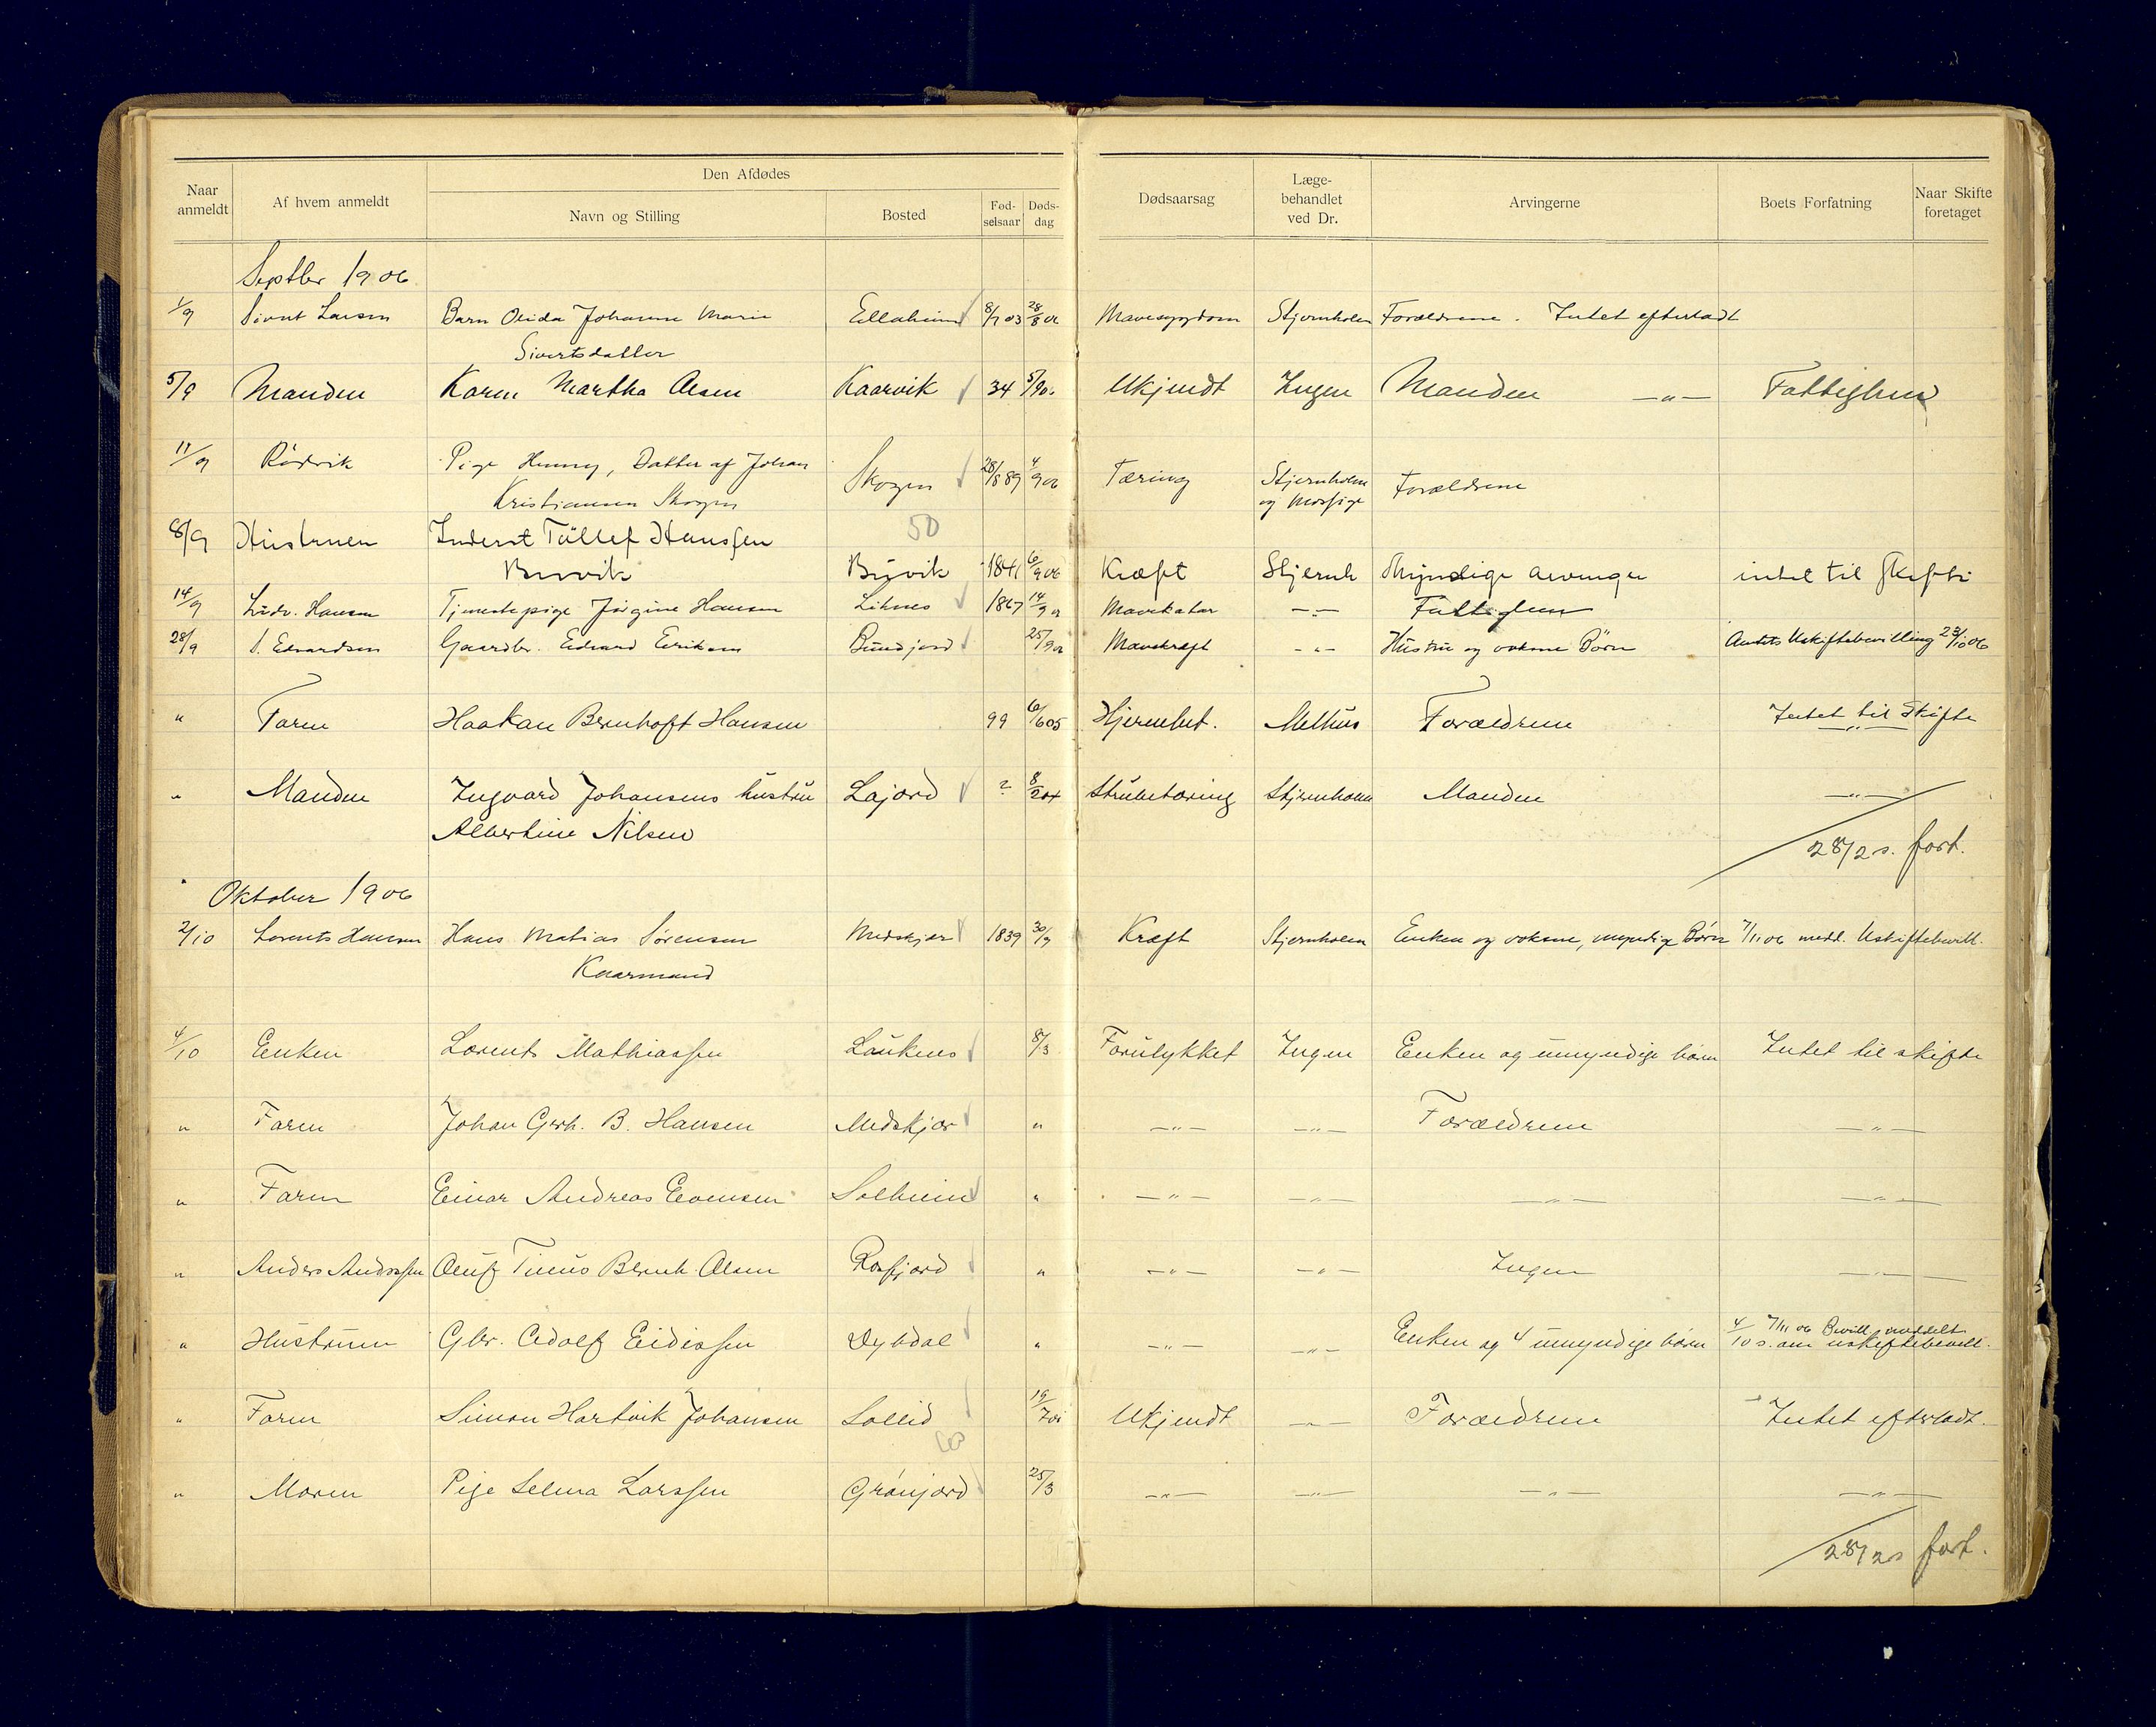 Naar anmeldt | Af hvem anmeldt | Den Afdødes | Dødsaarsag | Læge-behandlet ved Dr. | Arvingerne | Boets Forfatning | Naar Skifte foretaget
Navn og Stilling | Bosted | Fød-selsaar | Døds-dag
Septbr 1906
1/9 Sivert Larsen Barn Olida Johanne Marie Ellaheim 8/7 03 28/8 06 Mavesygdom Stjernholm Forældrene. Intet efterladt
Sivertsdatter
5/9 Manden Karen Martha Olsen Kaarvik 34 5/9 06 Ukjendt Ingen Manden —"— Fattiglem
11/9 Rödvik Pige Henny, Datter af Johan Skogen 28/8 89 4/9 06 Tæring Stjernholm Forældrene
Kristiansen Skogen og Mossige
8/9 Hustruen Inderst Tollef Hanssen 50
Buvik Buvik 1841 6/9 06 Kræft Stjernh Myndige arvinger intet til skifte
14/9 Ludv. Hansen Tjenestepige Jörgine Hansen Lihnes 1867 14/9 06 Mavekatar —"— Fattiglem
28/9 S. Edvardsen Gaardbr. Edvard Eriksen Bundjord 25/9 06 Mavekræft —"— Hustru og voksne Börn Amtets Uskiftebevilling 23/10 06
" Faren Haakan Bernhoft Hansen 99 6/6 05 Hjernebet. Melhus Forældrene Intet til skifte
" Manden Ingvard Johansens hustru Lajord ? 8/2 04 Strubetæring Stjernholm Manden —"—
Albertine Nilsen
28/2 s. fort.
Oktober 1906
2/10 Lorents Hansen Hans Matias Sörensen Medskjær 1839 30/9 Kræft Stjernholm Enken og voksne, myndige Börn 7/11 06 medd. Uskiftebevill.
Kaarmand
4/10 Enken Lorents Mathiassen Laukens 8/3 Forulykket Ingen Enken og umyndige börn Intet til skifte
" Faren Johan Gerh. B. Hansen Medskjær " —"— —"— Forældrene —"—
" Faren Einar Andreas Evensen Solheim " —"— —"— —"— —"—
" Anders Andressen Oluf Tinus Bernh. Olsen Rosfjord " —"— —"— Ingen —"—
" Hustruen Gbr. Adolf Eidissen Dybdal " —"— —"— Enken og 4 umyndige börn 4/10 s. om uskiftebevill. 7/11 06 Bevill. meddelt
" Faren Simon Hartvik Johansen Sollid 19/7 01 Ukjendt —"— Forældrene Intet efterladt.
" Moren Pige Selma Larssen Grönjord 25/3 —"— —"— —"— —"—
28/2 s fort.